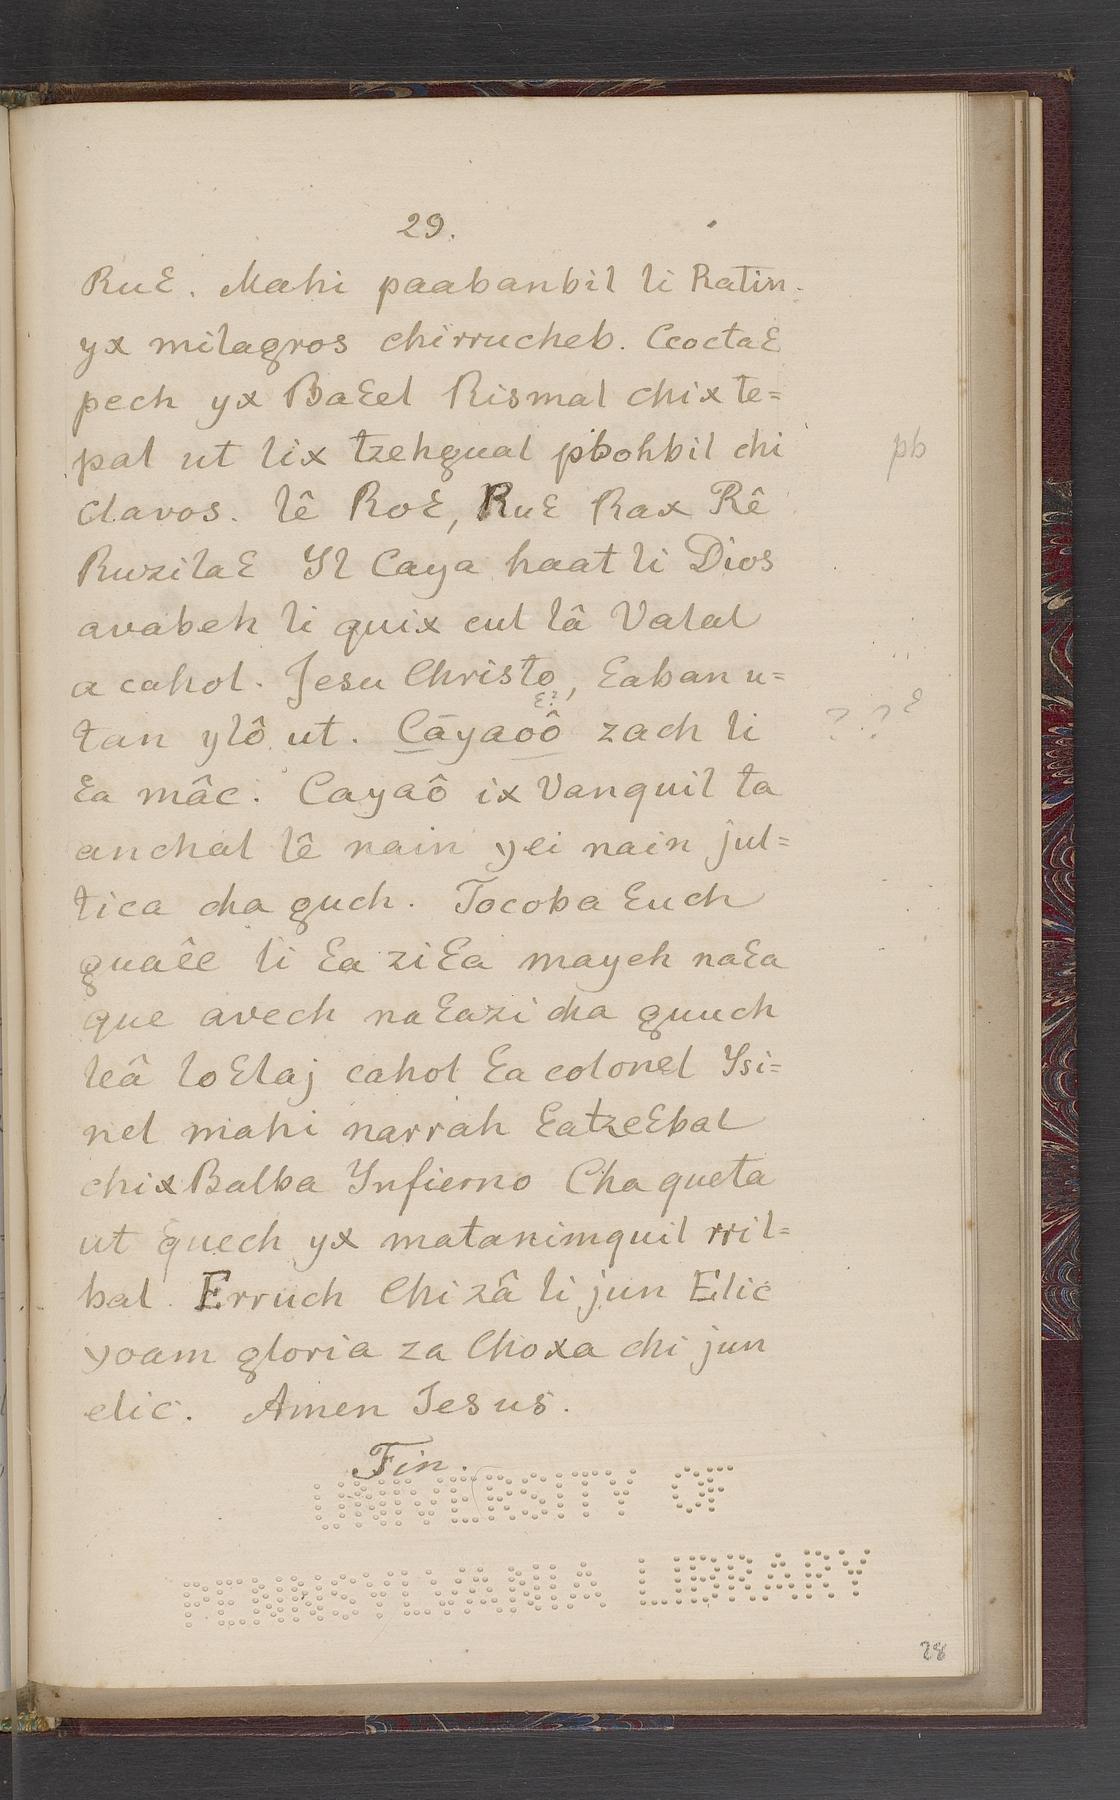 29.
Ruꜫ. Mahi paabanbil li Ratin.
yx milagros chirrucheb. Ccoctaꜫ
pech yx Baꜫel Rismal chix te=
pal ut lix tzehgual pbohbil chi
pb
clavos. lê Roꜫ, Ruꜫ Rax Rê
Ruzilaꜫ Yl Caya haat li Dios
avabeh li quix cul lâ Valal
a cahol. Jesu Christo, ꜫaban u=
ꜫ?
tan ylô ut. Cāyaoô zach li
? ? ꜫ
ꜫa mâc. Cayaô ix Vanquil ta
anchal lê nain yei nain jul=
tica cha guch. Tocoba ꜫuch
guaêe li ꜫa ziꜫa mayeh naꜫa
que avech naꜫazi cha guuch
leâ loꜫlaj cahol ꜫa colonel Ysi=
nel mahi narrah ꜫatzeꜫbal
chix Balba Ynfierno Cha queta
ut quech yx matanimquil rril=
bal Erruch Chi zâ li jun Elic
yoam gloria za Choxa chi jun
elic. Amen Jesus.
Fin.
UNIVERSITY OF
PENNSYLVANIA LIBRARY
28